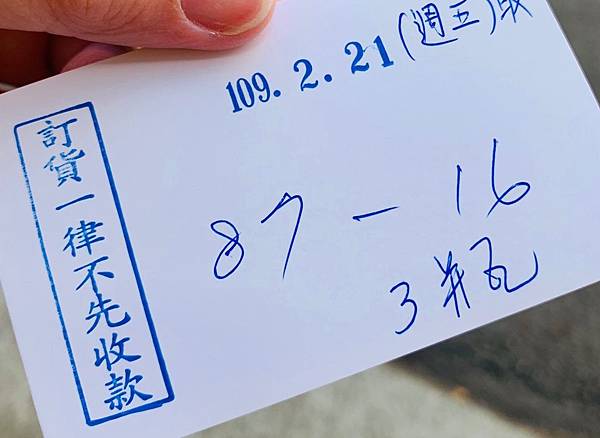 109.2.21(週五)取
訂貨一律不先收款
87-16
3瓶